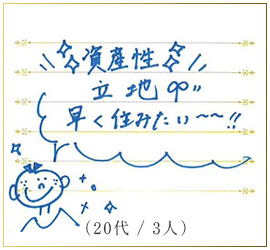 資産性
立地◎"
早く住みたい〜〜!!
(20代 / 3人)